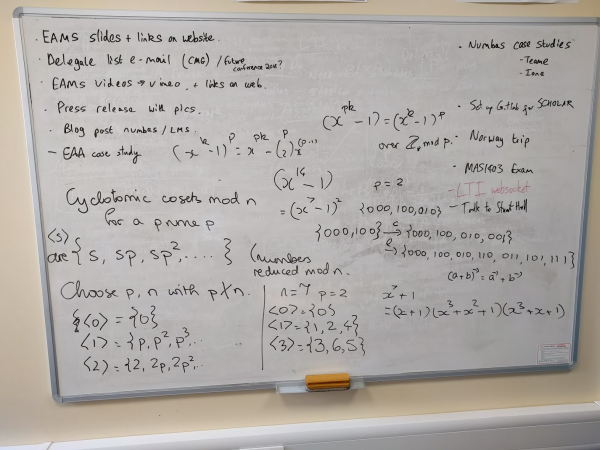 • EAMS slides + links on website.
• Delegate list e-mail (CMG) / future conference 2018?
• EAMS videos → vimeo, + links on web.
• Press release with pics.
• Blog post numbas / LMS.
– EAA case study
(x^k - 1)^p = x^pk - (p 2) x^(p-1)
(x^pk - 1) = (x^k - 1)^p
over Z, mod p.
(x^14 - 1)
= (x^7 - 1)^2
p = 2
{000, 100, 010}
{000, 100} →c {000, 100, 010, 001}
→e {000, 100, 010, 110, 011, 101, 111}
(a+b)^p = a^p + b^p
x^7 + 1
= (x+1)(x^3+x^2+1)(x^3+x+1)
• Numbas case studies
- Teame
- Ione
• Set up GitHub for SCHOLAR
• Norway trip
• MAS1403 Exam
- LTI websocket
- Talk to Stuart Hall
Cyclotomic cosets mod n
for a prime p
<s>
are {s, sp, sp^2, .... }
(numbers
reduced mod n.
Choose p, n with p∤n.
<0> = {0}
<1> = {p, p^2, p^3, ..
<2> = {2, 2p, 2p^2, ..
n = 7 p = 2
<0> = {0}
<1> = {1, 2, 4}
<3> = {3, 6, 5}